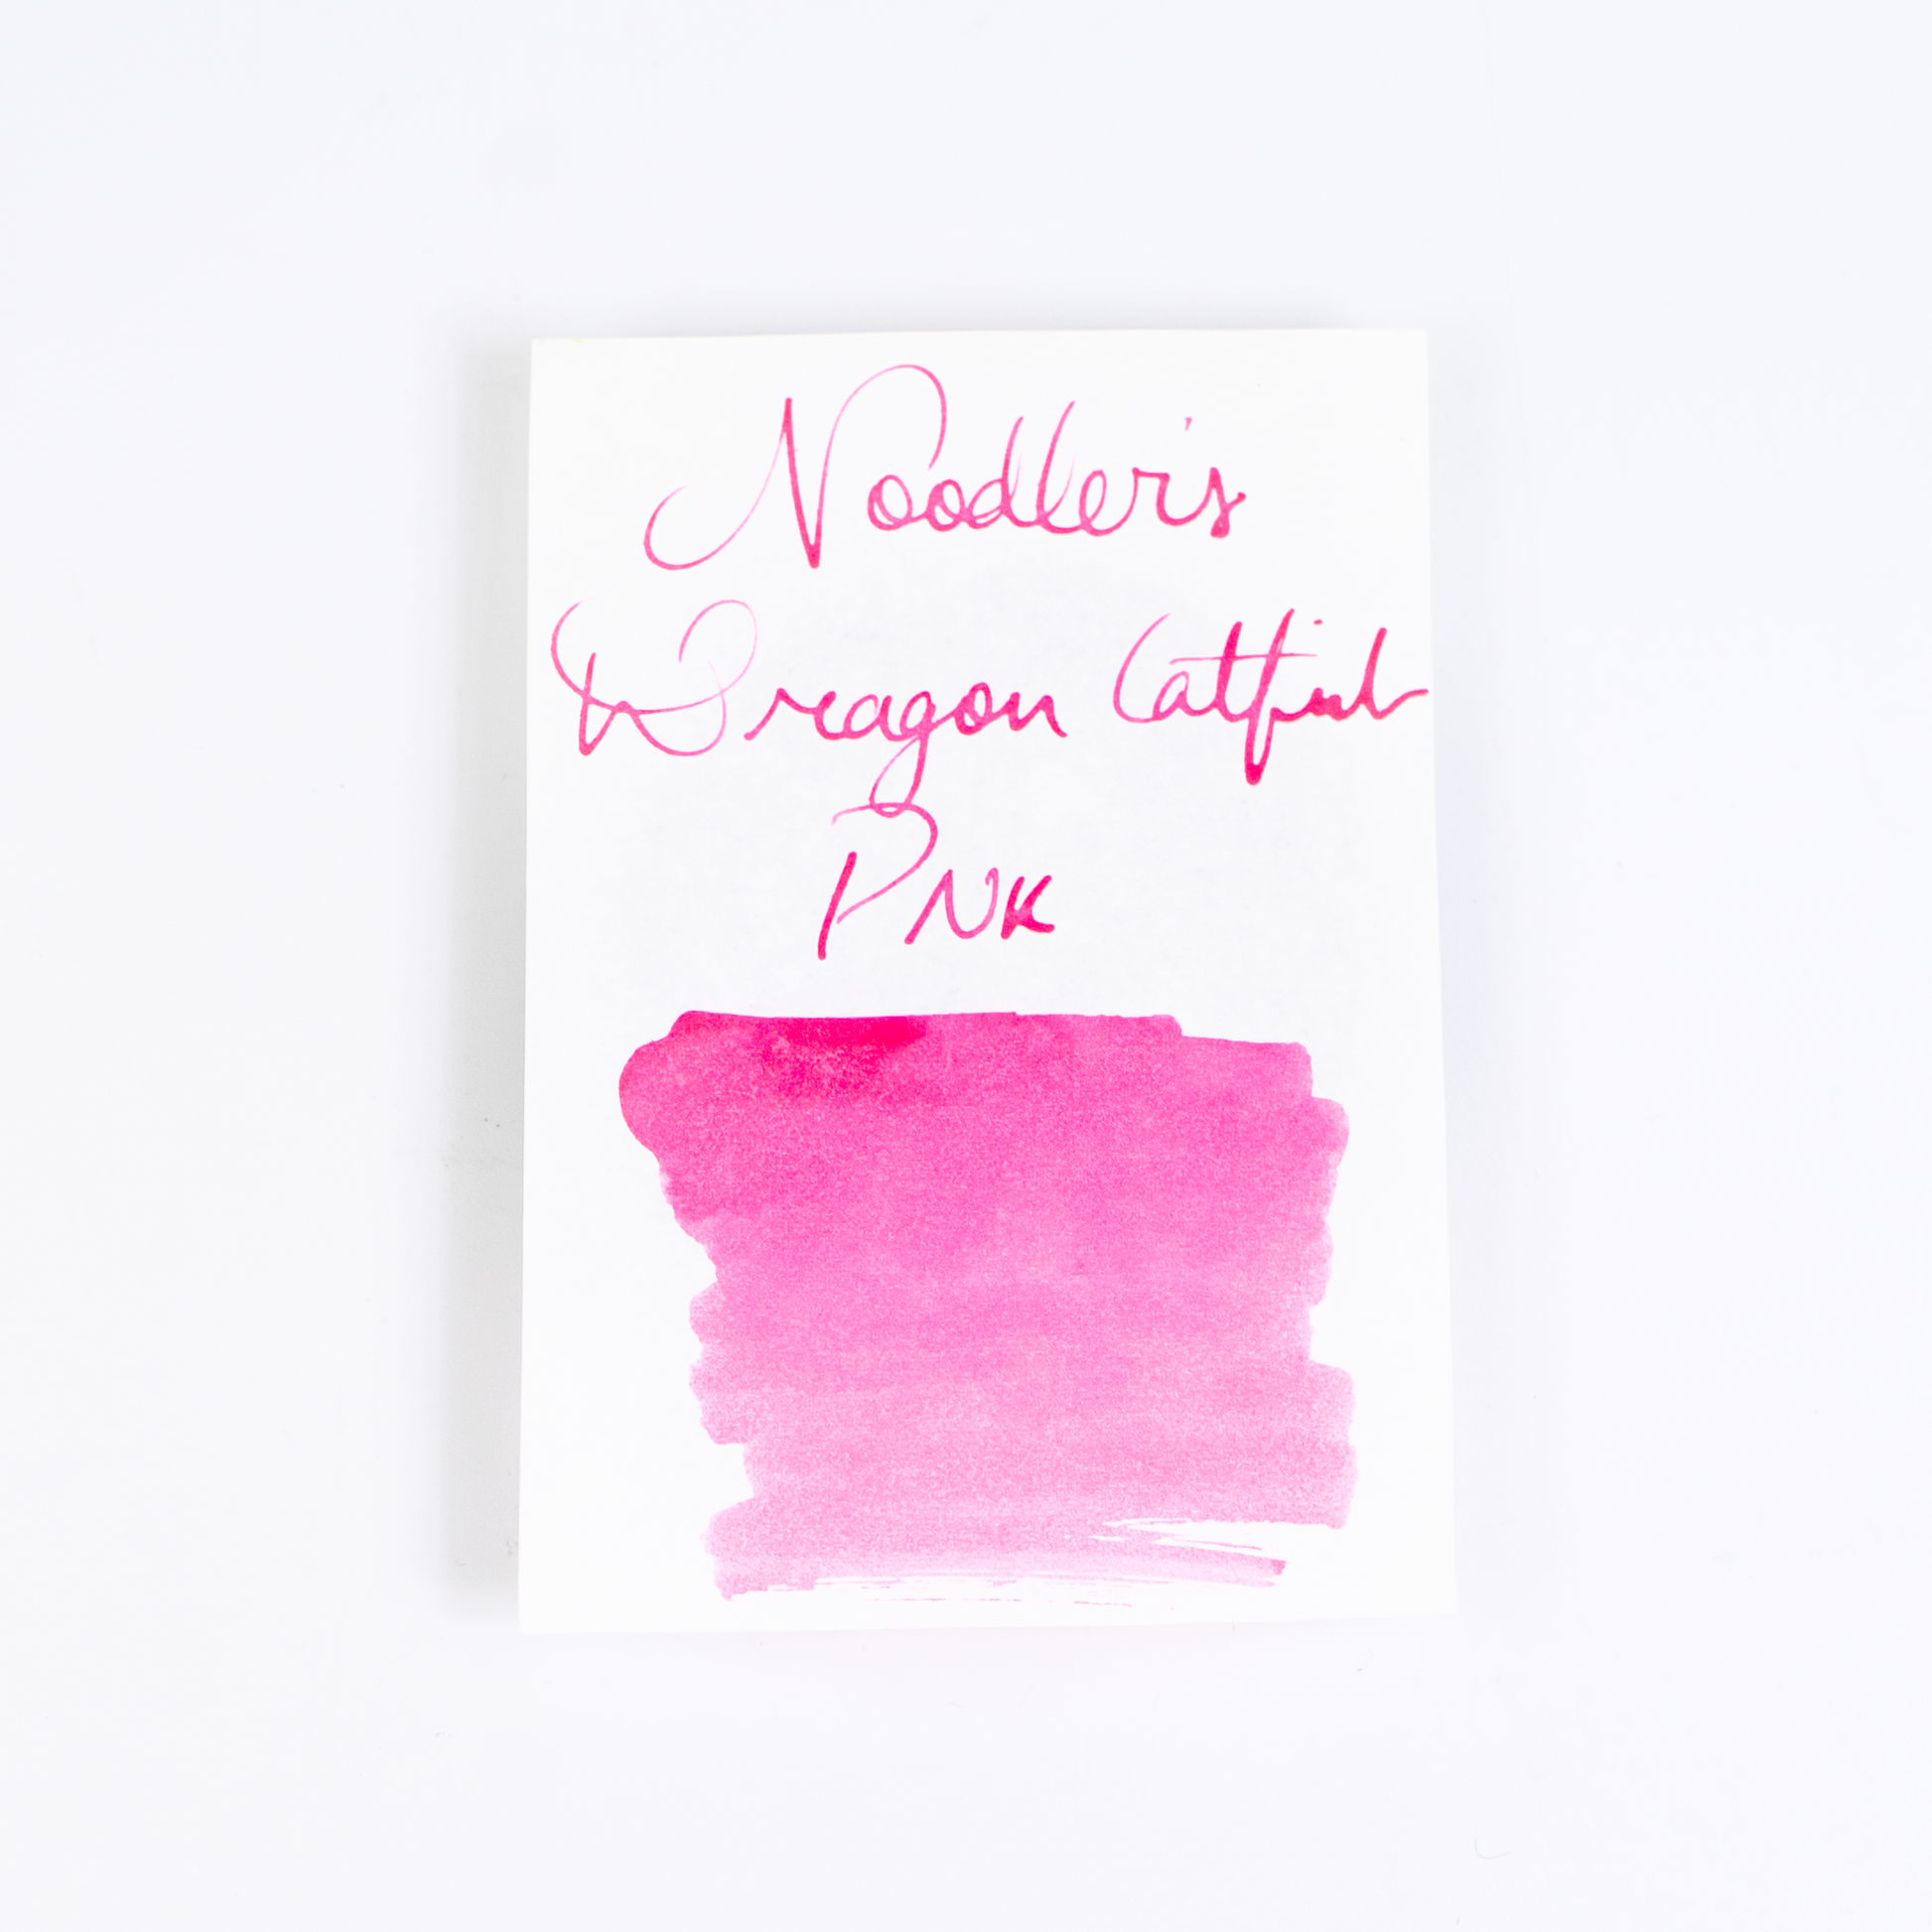 Noodler's
Dragon Catfish
PNK